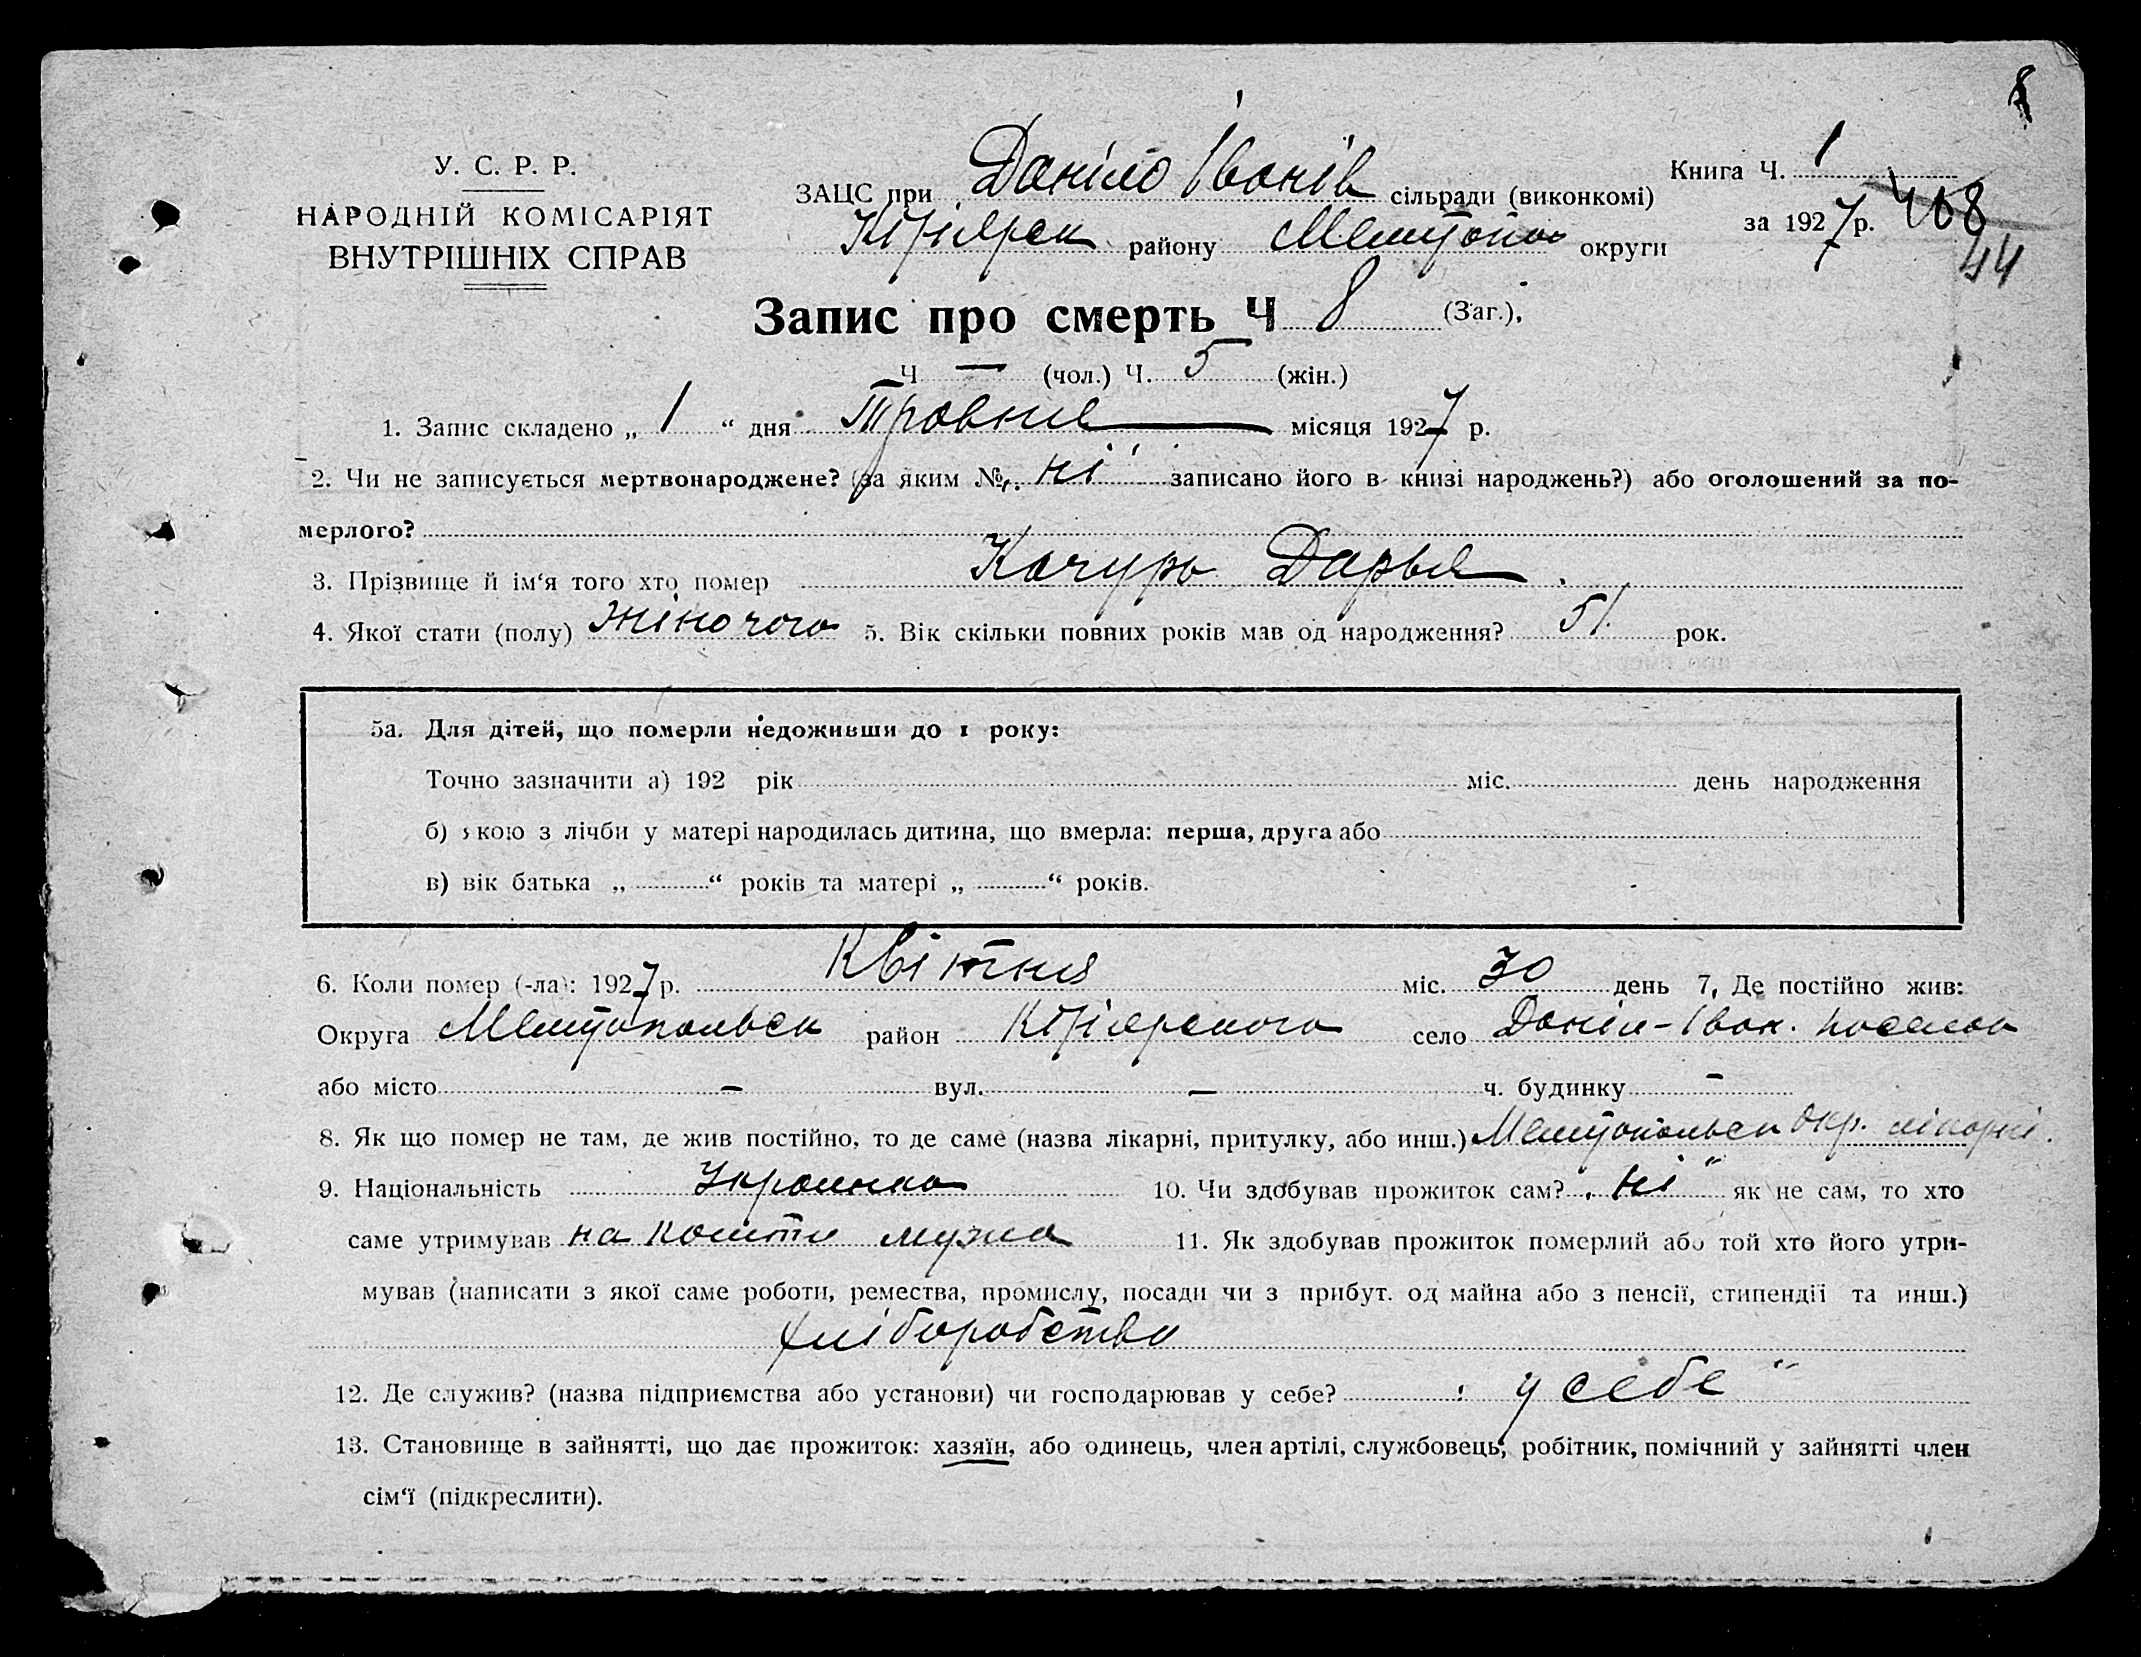 8
У. С. Р. Р.
НАРОДНІЙ КОМІСАРІЯТ
ВНУТРІШНІХ СПРАВ
ЗАЦС при Даніло Іванів сільради (виконкомі)
району Мелітопол округи
Книга Ч. 1
за 1927 р.
468
44
Запис про смерть Ч 8 (Заг.),
Ч — (чол.) Ч. 5 (жін.)
1. Запис складено „ 1 “ дня Травня місяця 1927 р.
2. Чи не записується мертвонароджене? (за яким № „ні“ записано його в книзі народжень?) або оголошений за по-
мерлого?
3. Прізвище й ім‘я того хто помер Качурь Дарья
4. Якої стати (полу) жіночого 5. Вік скільки повних років мав од народження? 51 рок.
5а. Для дітей, що померли недоживши до 1 року:
Точно зазначити а) 192 рік міс. день народження
б) якою з лічби у матері народилась дитина, що вмерла: перша, друга або
в) вік батька „ “ років та матері „ “ років.
6. Коли помер (-ла): 1927 р. Квітня міс. 30 день 7. Де постійно жив:
Округа Мелитопольск район село Даніл-Іван.
або місто — вул. — ч. будинку —
8. Як що помер не там, де жив постійно, то де саме (назва лікарні, притулку, або инш.) Мелитопольск Окр. лікарні.
9. Національність Украинка 10. Чи здобував прожиток сам? „ні“ як не сам, то хто
саме утримував на кошти мужа 11. Як здобував прожиток померлий або той хто його утри-
мував (написати з якої саме роботи, ремества, промислу, посади чи з прибут. од майна або з пенсії, стипендії та инш.)
хліборобство
12. Де служив? (назва підприємства або установи) чи господарював у себе? „у себе“
13. Становище в зайнятті, що дає прожиток: хазяїн, або одинець, член артілі, службовець, робітник, помічний у зайнятті член
сім‘ї (підкреслити).